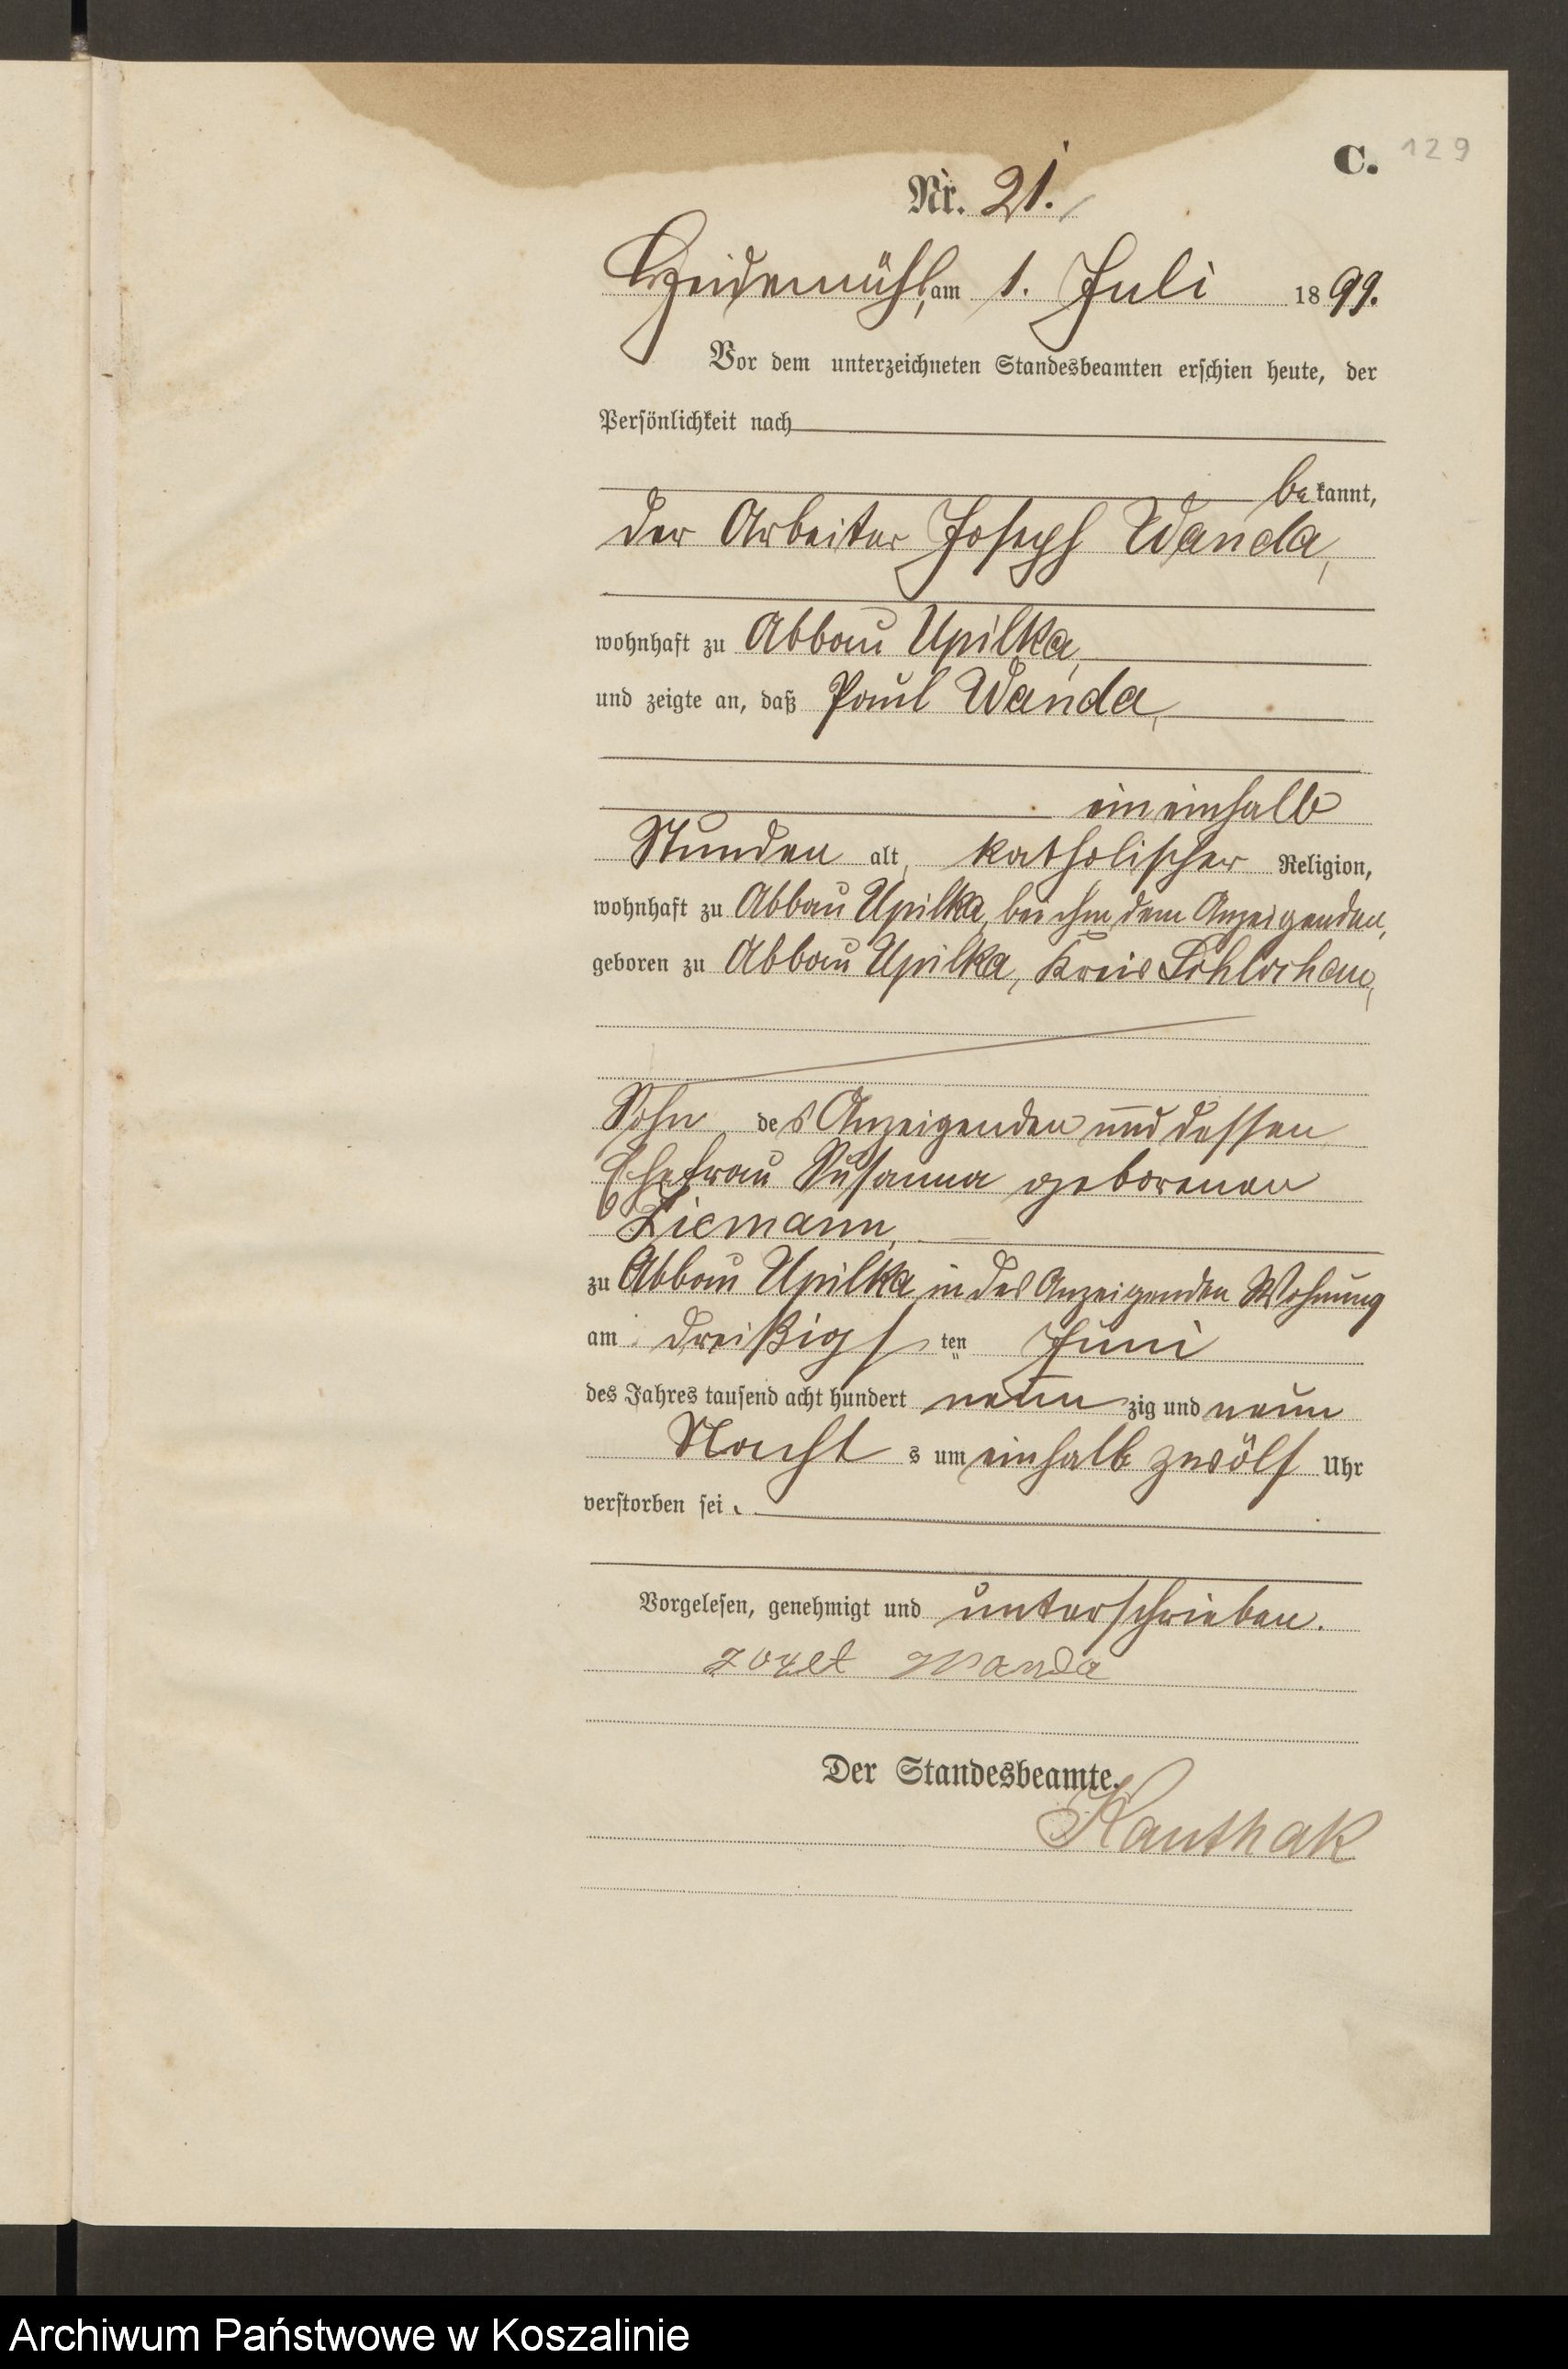 C. 129
Nr. 21.
Heidemühl, am 1. Juli 1899.
Vor dem unterzeichneten Standesbeamten erschien heute, der
Persönlichkeit nach
bekannt,
der Arbeiter Joseph Wanda,
wohnhaft zu Abbau Upilka,
und zeigte an, daß Paul Wanda,
ein einhalb
Stunden alt, katholischer Religion,
wohnhaft zu Abbau Upilka, bei ihm dem Anzeigenden,
geboren zu Abbau Upilka, Kreis Schlochau,
Sohn des Anzeigenden und dessen
Ehefrau Susanna geborenen
Ziemann,
zu Abbau Upilka in des Anzeigenden Wohnung
am dreißigsten Juni
des Jahres tausend acht hundert neunzig und neun
Nachts um einhalb zwölf Uhr
verstorben sei.
Vorgelesen, genehmigt und unterschrieben.
Wanda
Der Standesbeamte.
Kauthak
Archiwum Państwowe w Koszalinie